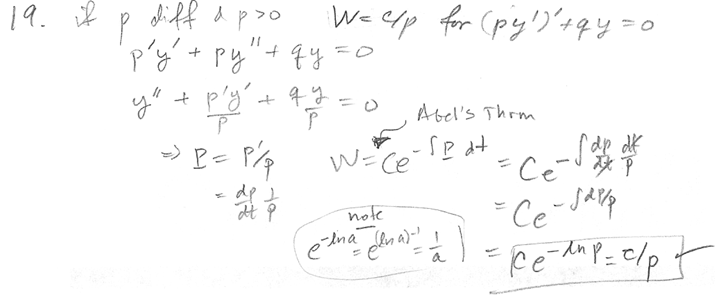 19. if p diff & p>0 W = c/p for (py')'+qy=0
p'y' + py" + qy = 0
y" + p'y'/p + qy/p = 0
Abel's Thrm
⇒ P = p'/p W = Ce^-∫P dt = Ce^-∫ dp/dt dt/p
= dp/dt 1/p = Ce^-∫dp/p
note
e^-ln a = e^(ln a)^-1 = 1/a = Ce^-ln p = c/p